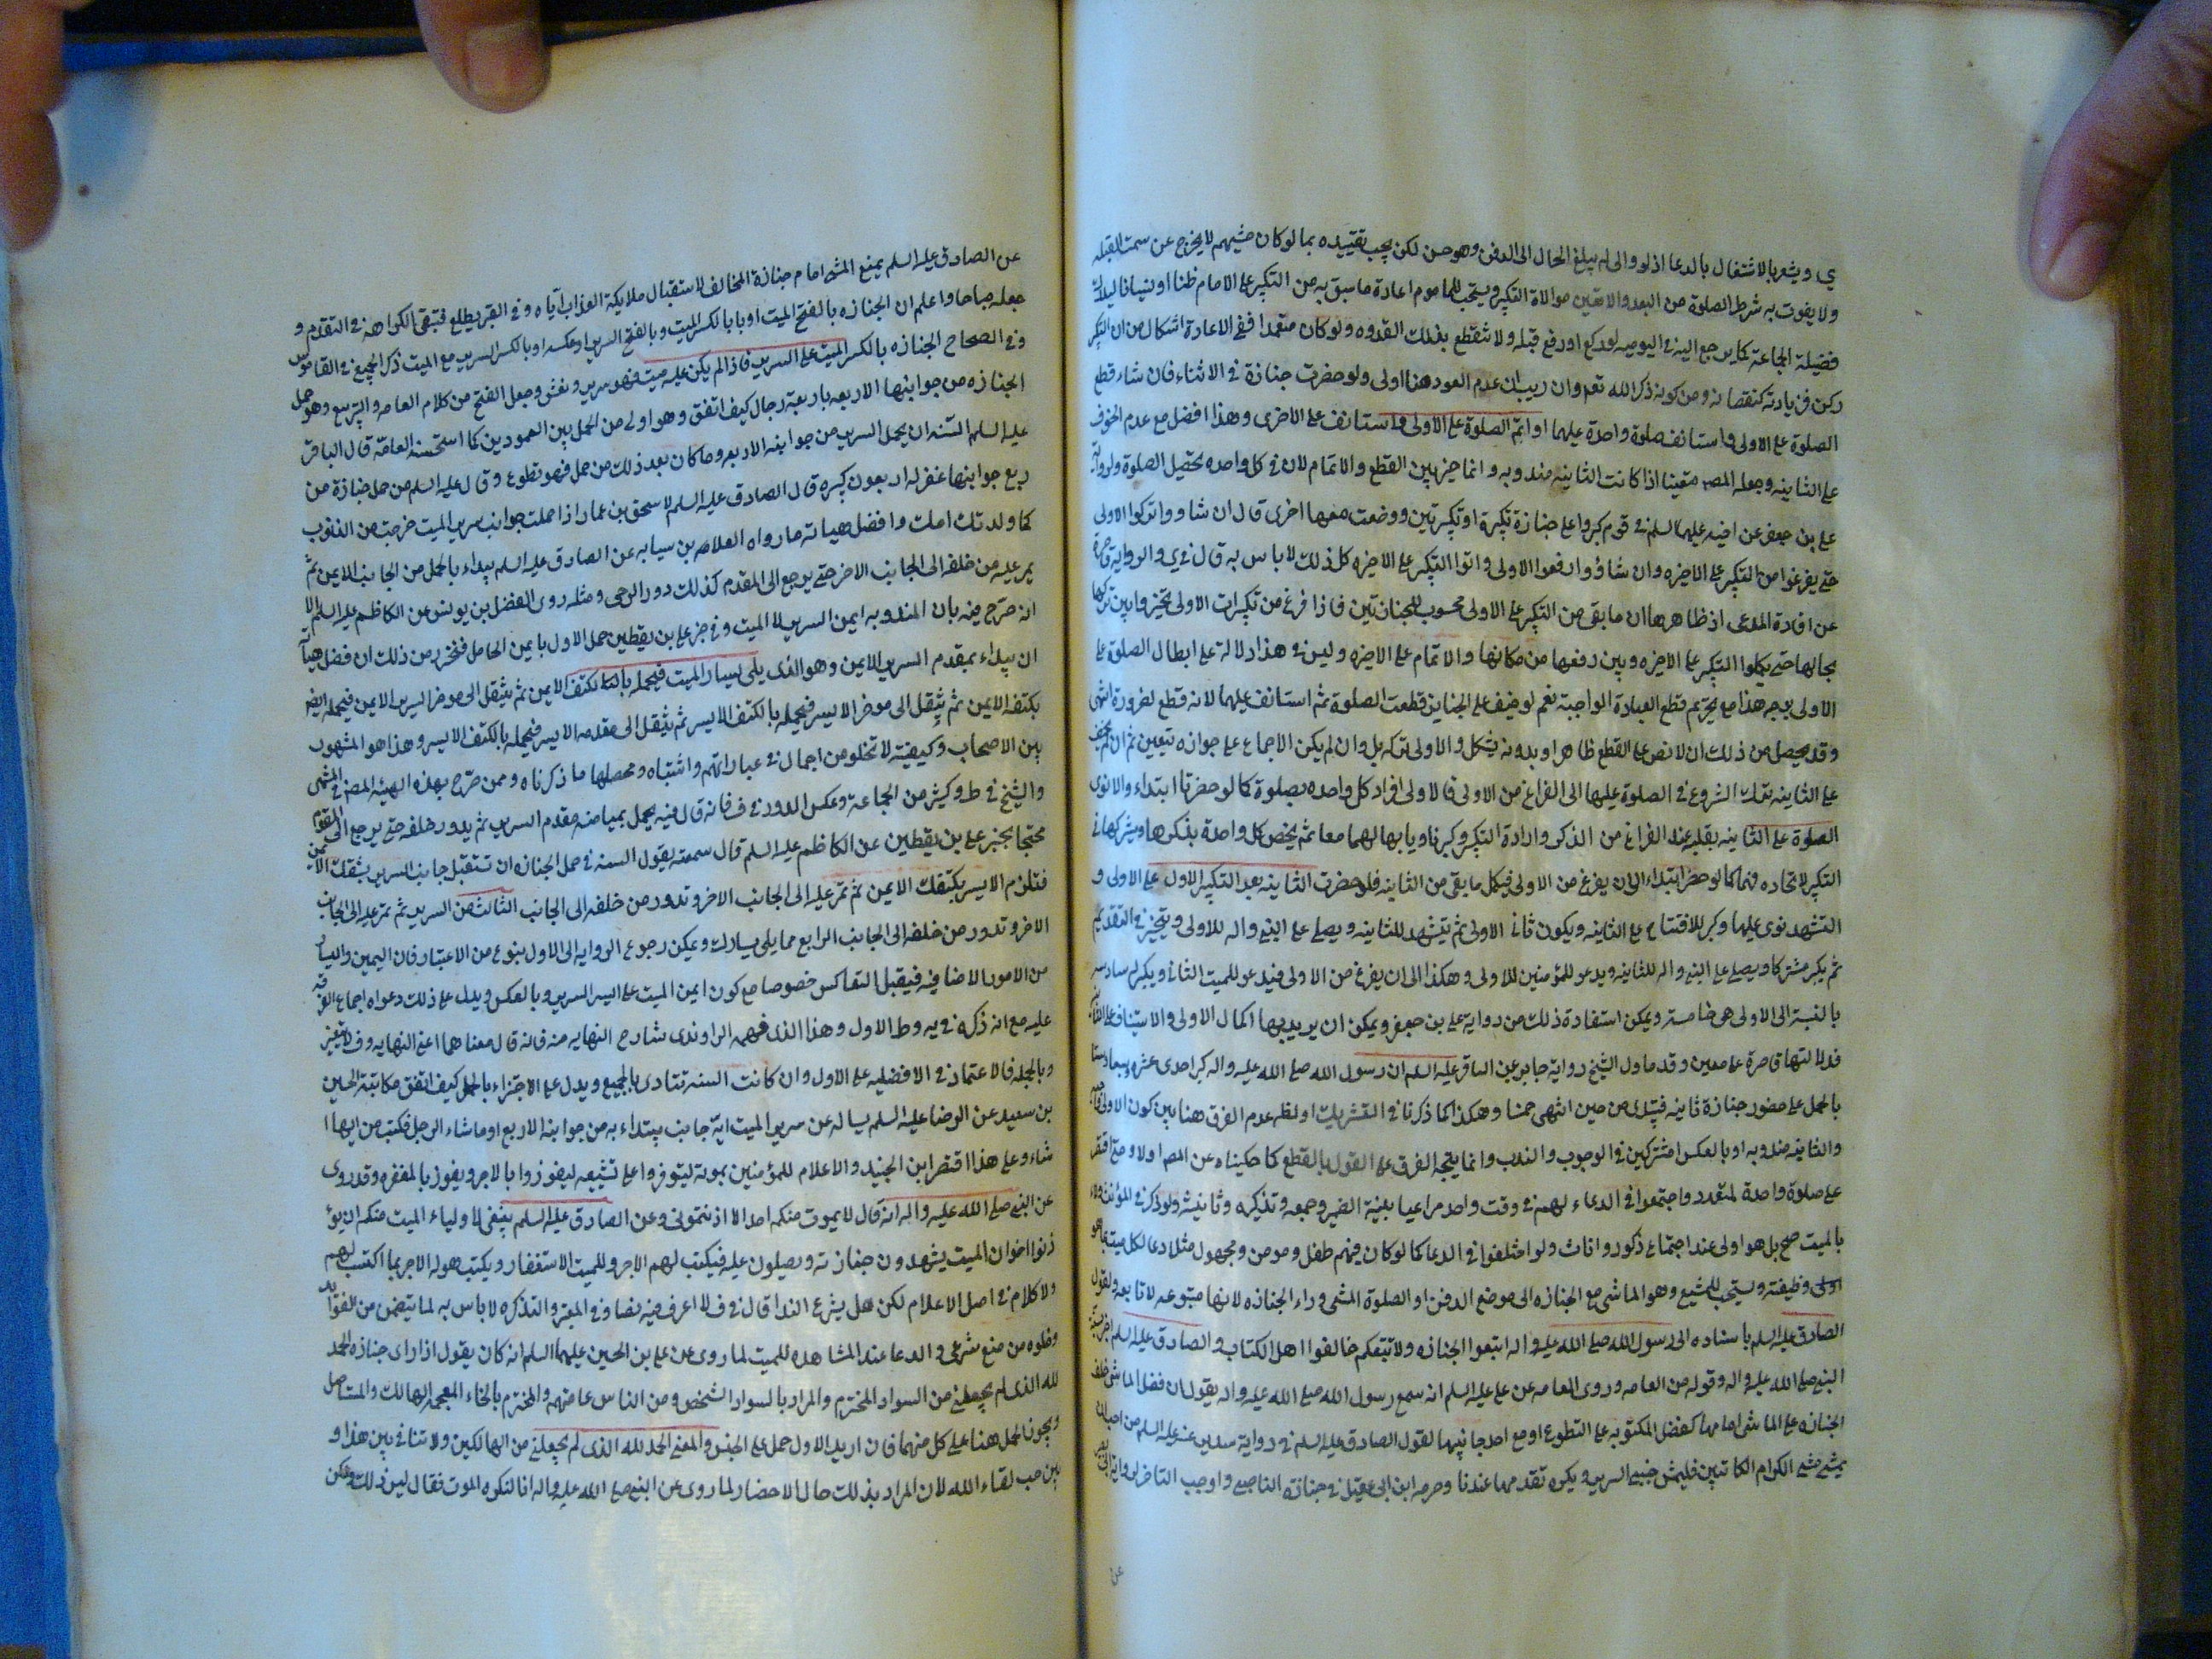 ي ويشعر بالاشتغال بالدعا اذ لو والى لم يبلغ الحال الى الدفن وهو حسن لكن يجب تقييده بما لو كان مشيهم لا يخرج عن سمت القبله
ولا يفوت به شرط الصلوة من البعد والا تعين موالاة التكبير ويستحب للماموم اعادة ما سبق به من التكبير على الامام ظنا او نسيانا ليدرك
فضيلة الجماعة كما يرجع اليه في اليوميه لو ركع او رفع قبله ولا تنقطع بذلك القدوه ولو كان متعمدا ففي الاعادة اشكال من ان التكبير
ركن فزيادته كنقصانه ومن كونه ذكر الله تعم وان ريب ان عدم العود هنا اولى ولو حضرت جنازة في الاثناء فان شاء قطع
الصلوة على الاولى واستانف صلوة واحدة عليهما او اتم الصلوة على الاولى واستانف على الاخرى وهذا افضل مع عدم الخوف
على الثانيه وجعله المصـ متعينا اذا كانت الثانيه مندوبه وانما خير بين القطع والاتمام لان في كل واحده يحصل الصلوة ولرواية
على بن جعفر عن اخيه عليهما السلم في قوم كبروا على جنازة تكبيرة او تكبيرتين ووضعت معها اخرى قال ان شاوا تركوا الاولى
حتى يفرغوا من التكبير على الاخيره وان شاؤا رفعوا الاولى واتموا التكبير على الاخيره كل ذلك لا باس به قال في ي والرواية قاصرة
عن افادة المدعى اذ ظاهرها ان ما بقى من التكبير على الاولى محسوب للجنازتين فاذا فرغ من تكبيرات الاولى تخيروا بين تركها
بحالها حتى يكملوا التكبير على الاخيره وبين رفعها من مكانها والاتمام على الاخيره وليس في هذا دلالة على ابطال الصلوة على
الاولى بوجه هذا مع تحريم قطع العبادة الواجبة نعم لو خيف على الجنايز قطعت الصلوة ثم استانف عليهما لانه قطع لضرورة انتهى
وقد يحصل من ذلك ان لا نص على القطع ظاهرا وبدونه يشكل والاولى تركه بل وان لم يكن الاجماع على جوازه تعين ثم ان لم يخف
على الثانيه بترك الشروع في الصلوة عليها الى الفراغ من الاولى فالاولى افراد كل واحده بصلوة كما لو حضرتا ابتداء والا نوى
الصلوة على الثانيه بقلبه عند الفراغ من الذكر وارادة التكبير وكبر ناويا بها لهما معا ثم يخص كل واحدة بذكرها ويشركها في
التكبير لاتحاده فيهما كما لو حضرا ابتداء الى ان يفرغ من الاولى فيكمل ما بقى من الثانيه فلو حضرت الثانيه بعد التكبير الاول على الاولى و
التشهد نوى عليهما وكبر للافتتاح على الثانيه ويكون ثاني الاولى ثم يتشهد للثانيه ويصلى على النبى واله للاولى ويتخير في التقديم
ثم يكبر مشتركا ويصلى على النبى واله للثانيه ويدعو للمؤمنين للاولى وهكذا الى ان يفرغ من الاولى فيدعو للميت الثاني ويكبر له سادسه
بالنسبة الى الاولى هى خامسته ويمكن استفادة ذلك من رواية على بن جعفر ويمكن ان يريد بها اكمال الاولى والاستيناف على الثانيه
فدلالتها قاصرة على معين وقد حاول الشيخ رواية جابر عن الباقر عليه السلم ان رسول الله صلى الله عليه واله كبر احدى عشره وسبعا وستا
بالحمل على حضور جنازة ثانيه فيبتدى من حين انتهى خمسا وهكذا كما ذكرنا في التشريك او لظهر عدم الفرق هنا بين كون الاولى
والثانيه مندوبه او بالعكس او مشتركين في الوجوب والندب وانما يتجه الفرق على القول بالقطع كما حكيناه عن المصـ اولا ومتى اقتصر
على صلوة واحدة لمتعدد واجتمعوا في الدعاء لهم في وقت واحد مراعيا بلينة الضمير وجمعه وتذكيره وتانيثه ولو ذكر في المؤنث
بالميت صح بل هو اولى عند اجتماع ذكور واناث ولو اختلفوا في الدعا كما لو كان فيهم طفل ومومن ومجهول مثلا دعا لكل ميت بما هو
وظيفته ويستحب للمشيع وهو الماشى مع الجنازه الى موضع الدفن او الصلوة المشى وراء الجنازه لانها متبوعه لا تابعه ولقول
الصادق عليه السلم باسناده الى رسول الله صلى الله عليه واله اتبعوا الجنازه ولا تتبعكم خالفوا اهل الكتاب والصادق عليه السلم
النبى صلى الله عليه واله وقوله من العامه وروى العامه عن على عليه السلم انه سمع رسول الله صلى الله عليه واله يقول ان فضل الماشى خلف
الجنازه على الماشى امامها كفضل المكتوبه على التطوع او مع احد جانبيها لقول الصادق عليه السلم في رواية سدير عنه عليه السلم من احب ان
يمشى مشى الكرام الكاتبين فليمش جنبى السرير ويكره تقدمها عندنا وحرمه ابن ابى عقيل في جنازة الناصبى واوجب التاخر لرواية ابى بصير
عن
عن الصادق عليه السلم بمنع المشى امام جنازة المخالف لاستقبال ملايكة العذاب اياه وفي القبر يطلع فتبقى الكراهة في التقدم و
جعله مباحا واعلم ان الجنازه بالفتح الميت او بالكسر الميت وبالفتح السرير او عكسه او بالكسر السرير مع الميت ذكر الجميع في القاموس
وفي الصحاح الجنازه بالكسر الميت على السرير فاذا لم يكن عليه ميت فهو سرير ونعش وجعل الفتح من كلام العامه والتربيع وهو حمل
الجنازه من جوانبها الاربعه باربعة رجال كيف اتفق وهو اولى من الحمل بين العمودين كما استحسنه العامة قال الباقر
عليه السلم السنه ان يحمل السرير من جوانبه الاربعه وما كان بعد ذلك من حمل فهو تطوع وقال عليه السلم من حمل جنازة من
ربع جوانبها غفر له اربعون كبيره قال الصادق عليه السلم لاسحق بن عمار اذا حملت جوانب سرير الميت خرجت من الذنوب
كما ولدتك امك وافضل هيأته ما رواه العلا بن سيابه عن الصادق عليه السلم يبداء بالحمل من الجانب الايمن ثم
يمر عليه من خلفه الى الجانب الاخر حتى يرجع الى المقدم كذلك دور الرحى ومثله روى الفضل بن يونس عن الكاظم عليه السلم الا
انه صرح فيه بان المبدو به ايمن السرير لا الميت وفي خبر على بن يقطين حمل الاول بايمن الحامل فتحرر من ذلك ان افضل هيآ
ان يبداء بمقدم السرير الايمن وهو الذى يلى يسار الميت فيحمله بالكتف الايمن ثم ينتقل الى موخر السرير الايمن فيحمله ايضا
بكتفه الايمن ثم ينتقل الى موخر الايسر فيحمله بالكتف الايسر ثم ينتقل الى مقدمه الايسر فيحمله بالكتف الايسر وهذا هو المشهور
بين الاصحاب وكيفيته لا تخلو من اجمال في عباراتهم واشتباه ومحصلها ما ذكرناه وممن صرح بهذه الهيئة المصـ في المنتهى
والشيخ في ط وكثير من الجماعة وعكس الدور في ف فانه قال فيه يحمل بميامنه مقدم السرير ثم يدور خلفه حتى يرجع الى المقدم
محتجا بخبر على بن يقطين عن الكاظم عليه السلم قال سمعته يقول السنه في حمل الجنازه ان تستقبل جانب السرير بشقك الايمن
فتلزم الايسر بكتفك الايمن ثم تمر عليه الى الجانب الاخر وتدور من خلفه الى الجانب الثالث من السرير ثم تمر عليه الى الجانب
الاخر وتدور من خلفه الى الجانب الرابع مما يلى يسارك ويمكن رجوع الروايه الى الاول بنوع من الاعتبار فان اليمين واليسار
من الامور الاضافيه فيقبل التعاكس خصوصا مع كون ايمن الميت على ايسر السرير وبالعكس ويدل على ذلك دعواه اجماع الفرقه
عليه مع انه ذكره في يه وط الاول وهذا الذى فهمه الراوندى شارح النهايه منه فانه قال معناهما اعنى النهايه وف لا يتغير
وبالجمله فالاعتماد في الافضليه على الاول وان كانت السنه تتادى بالجميع ويدل على الاجتزاء بالحمل كيف اتفق مكاتبة الحسين
بن سعيد عن الرضا عليه السلم يساله عن سرير الميت اية جانب يبتداء به من جوانبه الاربع او ما شاء الرجل فكتب من ايها
شاء وعلى هذا اقتصر ابن الجنيد والاعلام للمؤمنين بموته ليتوفروا على تشييعه ليفوزوا بالاجر ويفوز بالمغفره وقد روى
عن النبى صلى الله عليه واله انه قال لا يموت منكم احد الا اذنتمونى وعن الصادق عليه السلم ينبغى لاولياء الميت منكم ان يؤ
ذنوا اخوان الميت يشهدون جنازته ويصلون عليه فيكتب لهم الاجر وللميت الاستغفار ويكتب هو له الاجر بما اكتسب لهم
ولا كلام في اصل الاعلام لكن هل يشرع الندا قال في ف لا اعرف فيه نصا وفي المعتبر والتذكره لا باس به لما يتضمن من الفوائد
وخلوه من منع شرعى والدعا عند المشاهده للميت لما روى عن على بن الحسين عليهما السلم انه كان يقول اذا راى جنازه الحمد
لله الذى لم يجعلنى من السواد المخترم والمراد بالسواد الشخص ومن الناس عامتهم والمخترم بالخاء المعجمه الهالك والمستاصل
ويجوز الحمل هنا على كل منهما فان اريد الاول حمل على الجنس والمعنى الحمد لله الذى لم يجعلنى من الهالكين ولا تنافى بين هذا و
بين حب لقاء الله لان المراد بذلك حال الاحضار لما روى عن النبى صلى الله عليه واله انا لنكره الموت فقال ليس ذلك ولكن